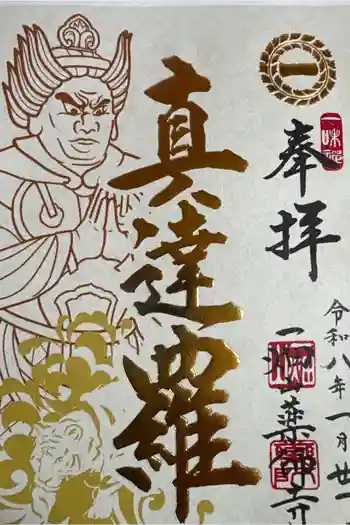 一
一味禅
奉拝
真達羅
令和八年一月廿一
一畑山薬師寺